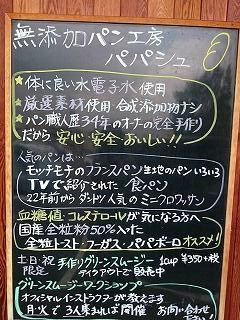 無添加パン工房
パパシュ
★体に良い水電子水使用
★厳選素材使用 合成添加物ナシ
★パン職人歴34年のオーナーの完全手作り
だから 安心・安全・おいしい!!
人気のパンは…
モッチモチのフランスパン生地のパンいろいろ
TVで紹介された 食パン
22年前から ダントツ人気の ミニクロワッサン
血糖値・コレステロールが気になる方へ
国産全粒粉50%入った
全粒トースト・フーガス・パパボーロ オススメ!
土・日・祝 限定
手作りグリーンスムージー 1cup ¥350+税
テイクアウトで販売中
グリーンスムージーワークショップ
オフィシャルインストラクターが教えます
月・火で 3人集まれば開催 お問い合せ下さい